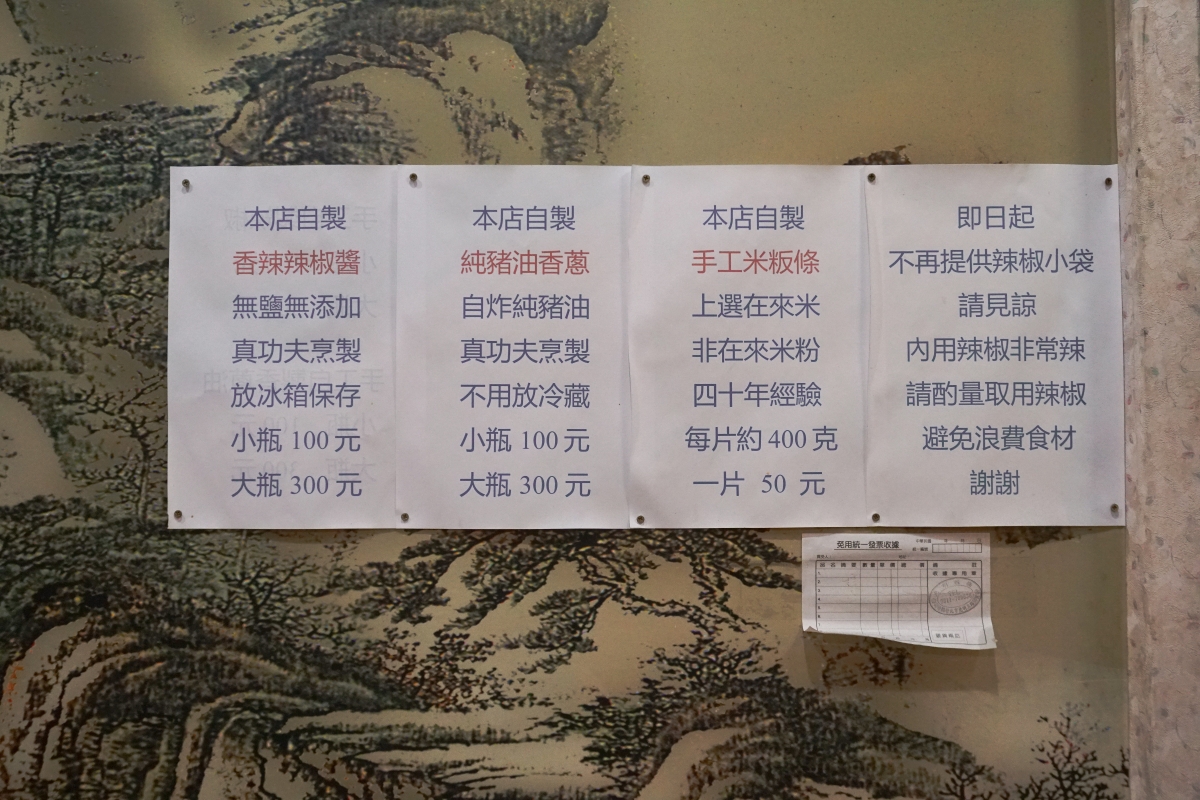 本店自製
香辣辣椒醬
無鹽無添加
真功夫烹製
放冰箱保存
小瓶 100 元
大瓶 300 元
本店自製
純豬油香蔥
自炸純豬油
真功夫烹製
不用放冷藏
小瓶 100 元
大瓶 300 元
本店自製
手工米粄條
上選在來米
非在來米粉
四十年經驗
每片約 400 克
一片 50 元
即日起
不再提供辣椒小袋
請見諒
內用辣椒非常辣
請酌量取用辣椒
避免浪費食材
謝謝
免用統一發票收據